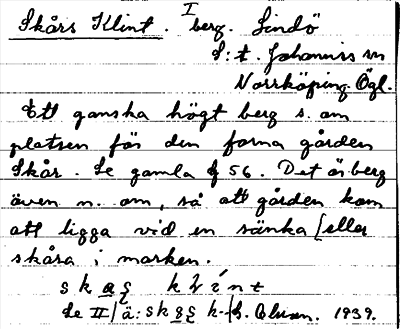 Skårs Klint. I berg. Lindö
S:t. Johannis sn
Norrköping Ögl.
Ett ganska högt berg s. om
platsen för den forna gården
Skår. Se gamla 56. Det är berg
även n. om, så att gården kom
att ligga vid en sänka [eller
skåra i marken.
se II/ä:
1939.